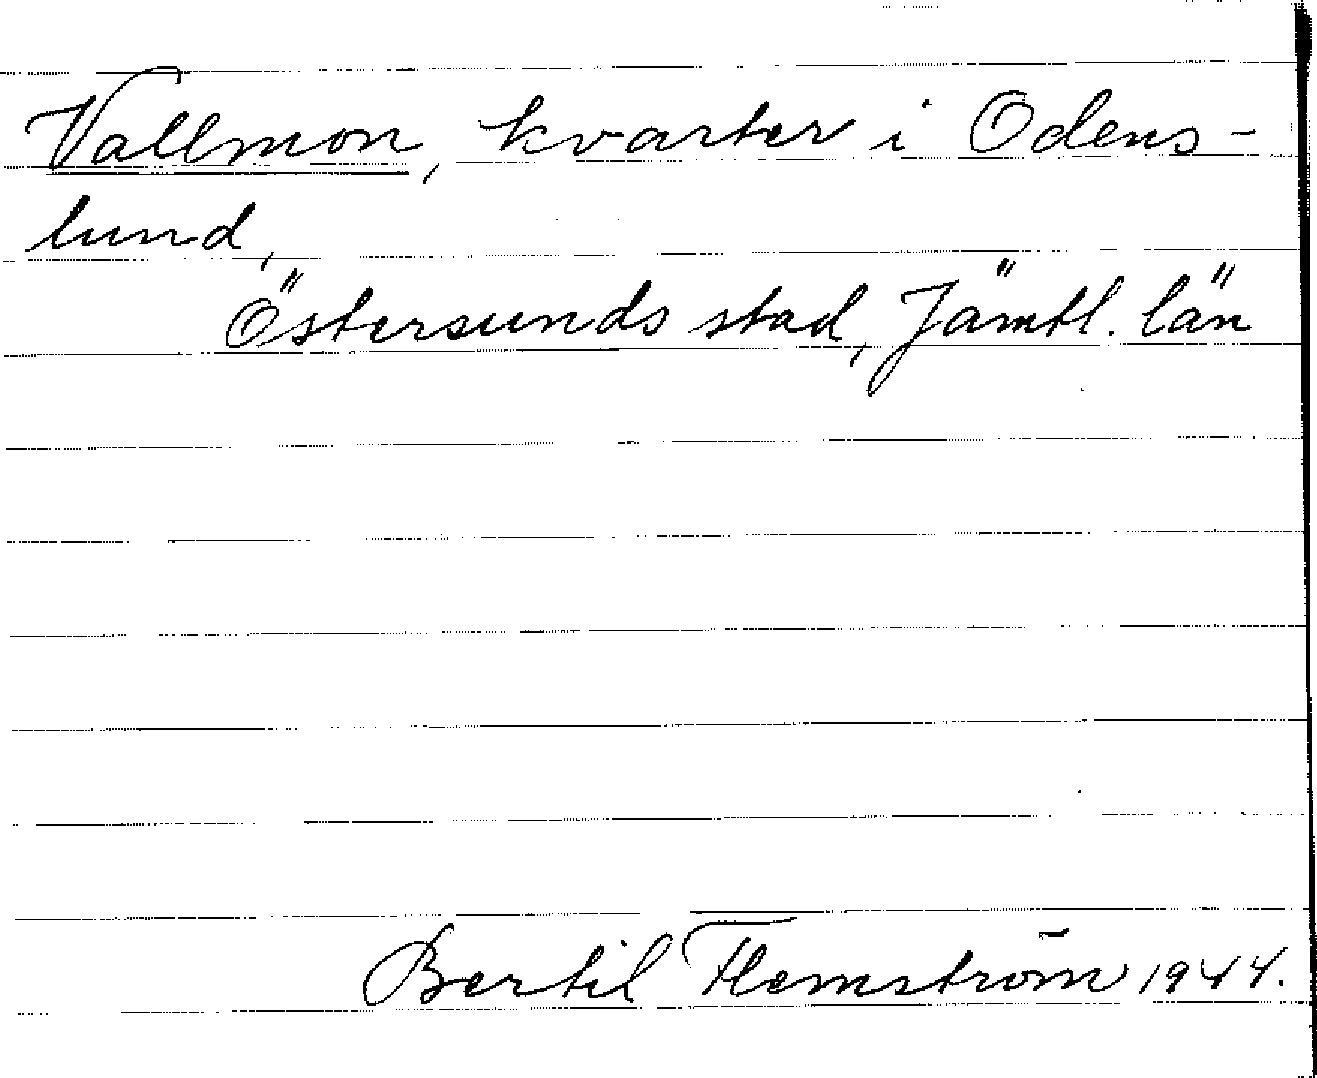 Vallmon, kvarter i Odens-
lund,
Östersunds stad, Jämtl. län
Bertil Flemström 1944.